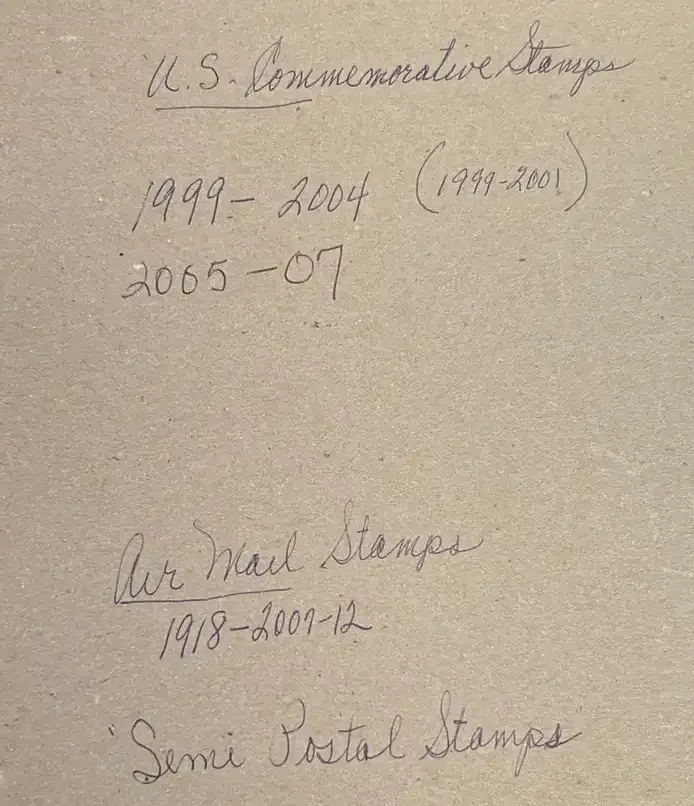 U.S. Commemorative Stamps
1999- 2004 (1999-2001)
2005-07
Air Mail Stamps
1918-2007-12
"Semi Postal Stamps"